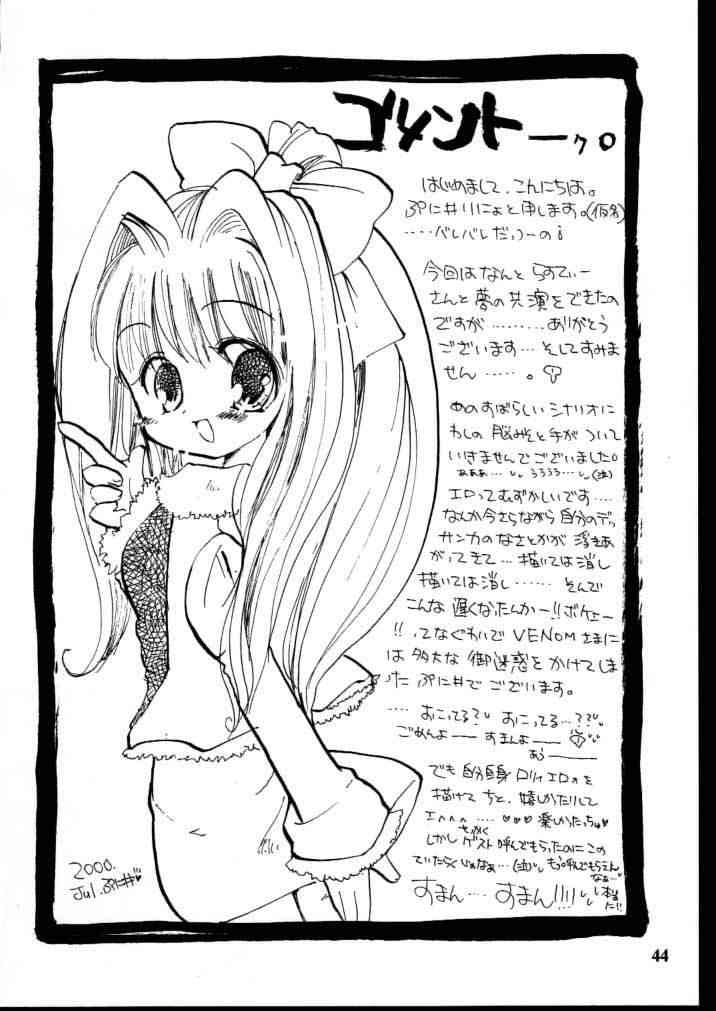 コメントーっ。
はじめまして、こんにちは。
ぷに井りにょと申します。(仮名)
‥‥バレバレだっつーの!
今回はなんと らすてぃー
さんと夢の共演をできたの
ですが‥‥‥‥ありがとう
ございます‥‥そしてすみま
せん‥‥‥。
あのすばらしいシナリオに
わしの脳みそと手がついて
いきませんでございました。
エロってむずかしいです‥‥
なんか今さらながら自分のデッ
サンカのなさとかが浮きあ
がってきて‥‥描いては消し
描いては消し‥‥‥そんで
こんな遅くなったんかー!!ボケェー
!!ってなぐあいで VENOMさまに
は多大な御迷惑をかけてしま
った ぷに井でございます。
‥‥おこってる? おこってる‥?
ごめんよー すまんよー
でも自分自身ロリィエロぉを
描けてちと、嬉しかったりして
楽しかったっちゅ
しかし せっかくゲスト呼んでもらったのにこの
ていたらくじゃなぁ‥‥(泣) もう呼んでもらえん
なぁ‥‥
すまん‥‥すまん!!!! 本当だ!!
2000.
Jul.ぷに井
44